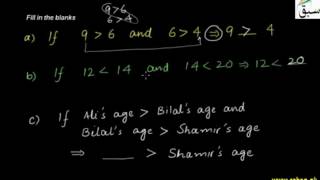 Fill in the blanks
9>6
6>4
a) If 9 > 6 and 6 > 4 ⇒ 9 > 4
b) If 12 < 14 and 14 < 20 ⇒ 12 < 20
c) If Ali's age > Bilal's age and
Bilal's age > Shamir's age
⇒ ___ > Shamir's age
سبق